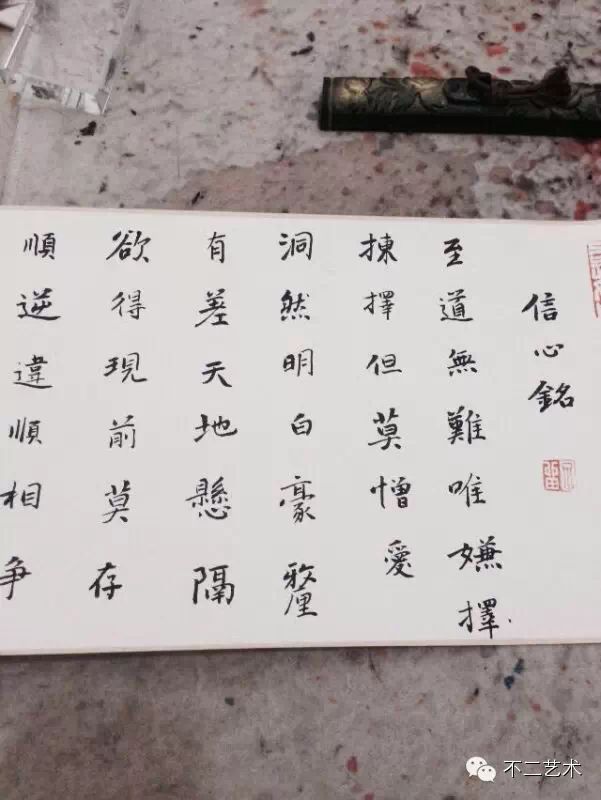 信心銘
至道無難唯嫌擇
揀擇但莫憎愛
洞然明白豪釐
有差天地懸隔
欲得現前莫存
順逆違順相争
不二艺术